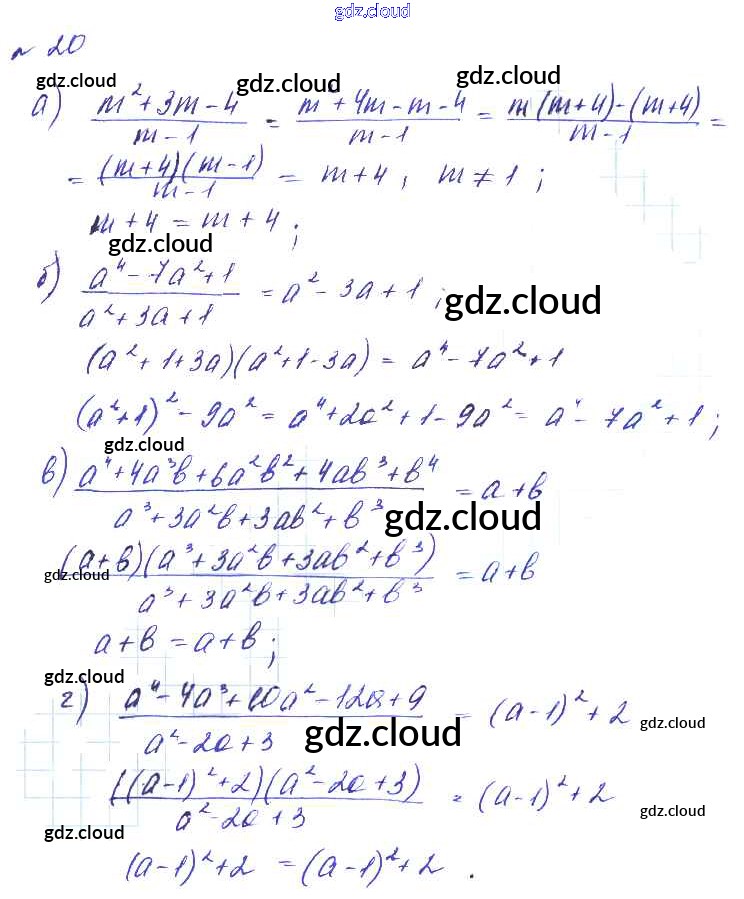 gdz.cloud
№ 20
gdz.cloud gdz.cloud gdz.cloud
а) (m² + 3m - 4)/(m - 1) = (m² + 4m - m - 4)/(m - 1) = (m(m+4) - (m+4))/(m - 1) =
= ((m+4)(m-1))/(m - 1) = m + 4, m ≠ 1;
m + 4 = m + 4;
gdz.cloud
б) (a⁴ - 7a² + 1)/(a² + 3a + 1) = a² - 3a + 1;
gdz.cloud
(a² + 1 + 3a)(a² + 1 - 3a) = a⁴ - 7a² + 1
(a² + 1)² - 9a² = a⁴ + 2a² + 1 - 9a² = a⁴ - 7a² + 1;
gdz.cloud
в) (a⁴ + 4a³b + 6a²b² + 4ab³ + b⁴)/(a³ + 3a²b + 3ab² + b³) = a + b
gdz.cloud
((a + b)(a³ + 3a²b + 3ab² + b³))/(a³ + 3a²b + 3ab² + b³) = a + b
gdz.cloud
a + b = a + b;
gdz.cloud
г) (a⁴ - 4a³ + 10a² - 12a + 9)/(a² - 2a + 3) = (a - 1)² + 2
gdz.cloud gdz.cloud
(((a - 1)² + 2)(a² - 2a + 3))/(a² - 2a + 3) = (a - 1)² + 2
gdz.cloud gdz.cloud
(a - 1)² + 2 = (a - 1)² + 2.